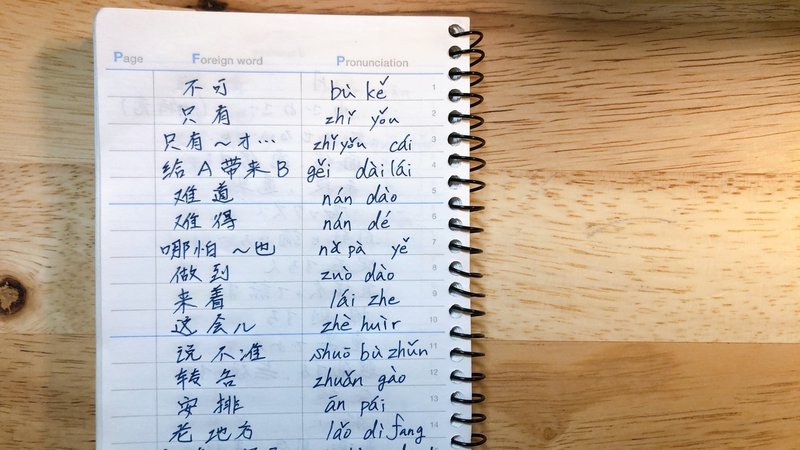 Page Foreign word Pronunciation
不可 bù kě 1
只有 zhǐ yǒu 2
只有～才… zhǐ yǒu cái 3
给A带来B gěi dài lái 4
难道 nán dào 5
难得 nán dé 6
哪怕～也 nǎ pà yě 7
做到 zuò dào 8
来着 lái zhe 9
这会儿 zhè huìr 10
说不准 shuō bù zhǔn 11
转告 zhuǎn gào 12
安排 ān pái 13
老地方 lǎo dì fang 14